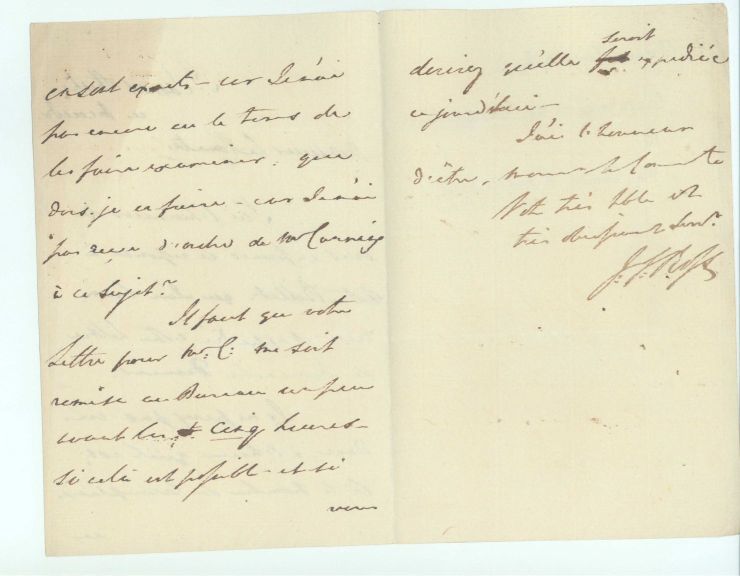 en sont exacts – car Je n'ai
pas encore eu le tems de
les faire examiner. que
dois-je en faire – car Je n'ai
pas reçu d'ordre de Mr
à ce Sujet.
Il faut que votre
Lettre pour Mr. C. me soit
remise au Bureau un peu
avant les Cinq heures –
si cela est possible – et si
vous
desirez qu'elle seroit expediée
aujourd'hui –
J'ai l'honneur
d'être, Monsr le Comte
Votre très hble et
très obeissant Servr.